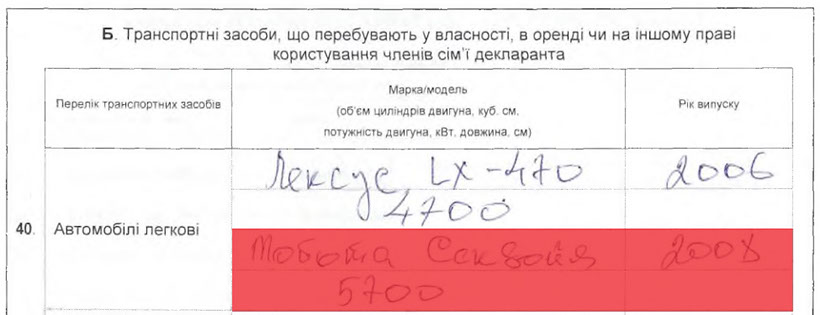 Б. Транспортні засоби, що перебувають у власності, в оренді чи на іншому праві
користування членів сім’ї декларанта
Перелік транспортних засобів
Марка/модель
(об’єм циліндрів двигуна, куб. см,
потужність двигуна, кВт, довжина, см)
Рік випуску
40. Автомобілі легкові
Лексус LX-470 2006
4700
Тойота Секвойя 2008
5700